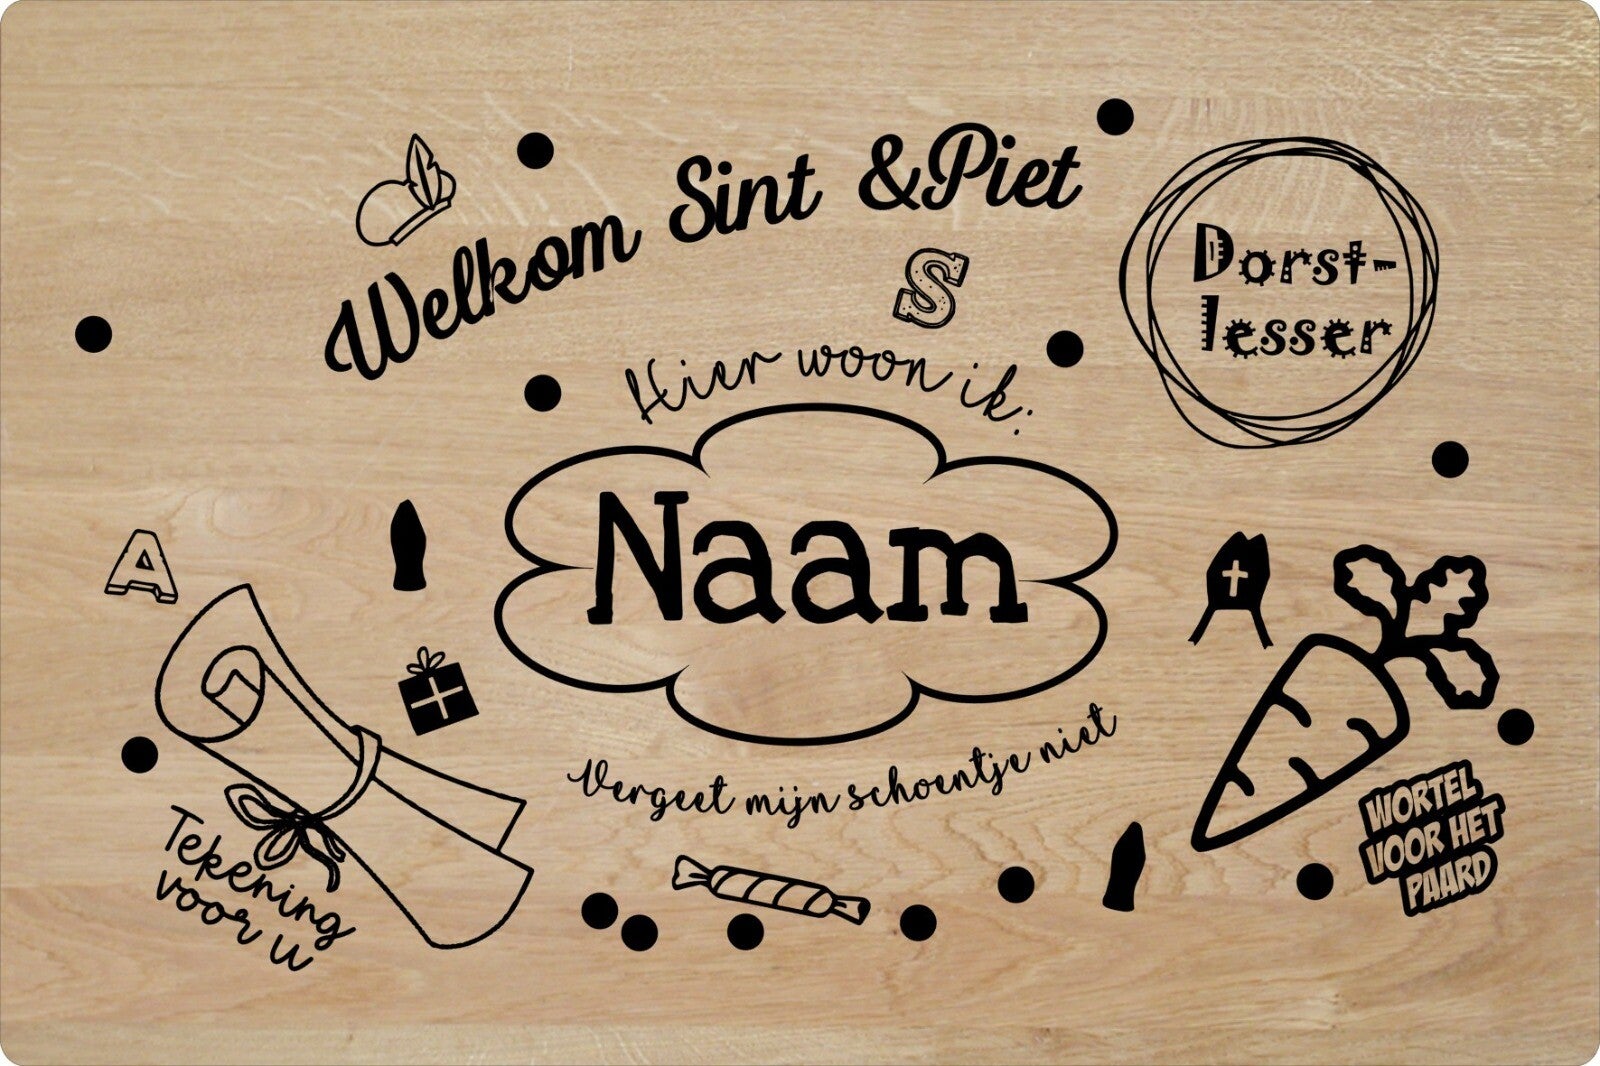 Welkom Sint & Piet
S
Dorst-
lesser
Hier woon ik:
Naam
A
Vergeet mijn schoentje niet
Tekening
voor u
WORTEL
VOOR HET
PAARD